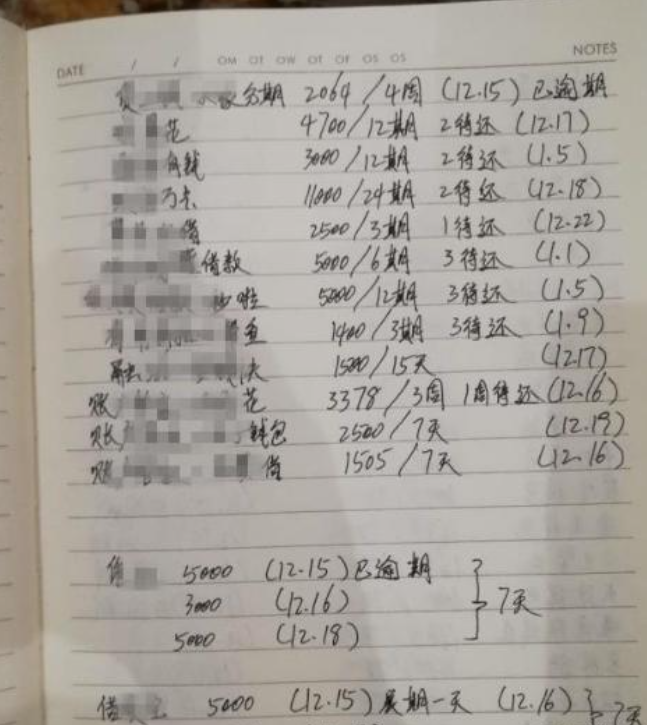 DATE / / OM OT OW OT OF OS OS NOTES
分期 2064/4周 (12.15) 已逾期
花 4700/12期 2待还 (12.17)
钱 3000/12期 2待还 (1.5)
万卡 11000/24期 2待还 (12.18)
借 2500/3期 1待还 (12.22)
借款 5000/6期 3待还 (1.1)
啦 5000/12期 3待还 (1.5)
鱼 1400/3期 3待还 (1.9)
1500/15天 (12.17)
账 花 3378/3周 1周待还 (12.16)
账 钱包 2500/7天 (12.19)
账 借 1505/7天 (12.16)
借 5000 (12.15) 已逾期
3000 (12.16)
7天
5000 (12.18)
借 5000 (12.15) 展期一天 (12.16) 7天